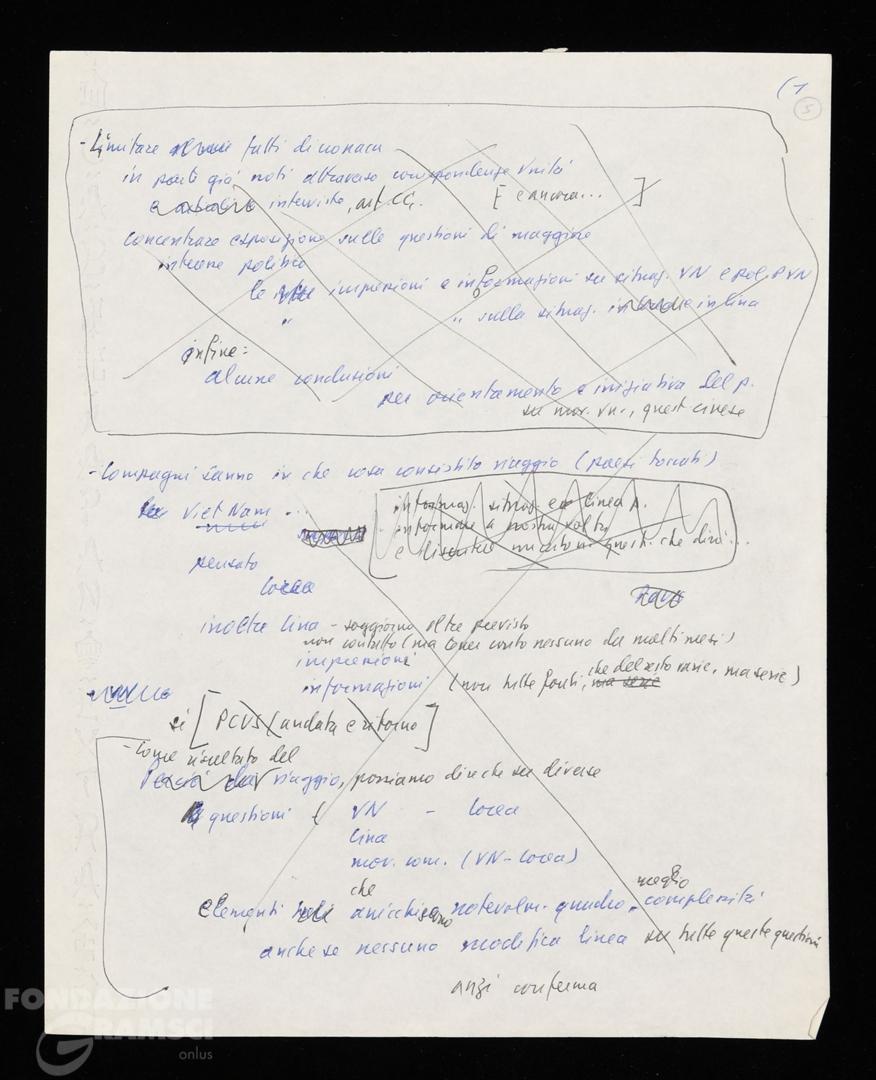 (1
5
- Limitare fatti di cronaca
in parte già noti attraverso corrispondenze Unità
interviste, art. CC. [ e ancora... ]
concentrare esposizione sulle questioni di maggiore
interesse politico
le impressioni e informazioni su situaz. VN e pol. PVN
" " sulla situaz. in Cina
infine:
alcune conclusioni
per orientamento e iniziativa del p.
su mov. vn., quest. cinese
- Compagni sanno in che cosa consistito viaggio (paesi toccati)
Viet Nam ...
informaz. situaz. e linea p.
informare a nostra volta
e discutere questi. che dirò...
pensato
Corea
inoltre Cina - soggiorno oltre previsto
non contatto (ma tener conto nessuno da molti mesi)
impressioni
informazioni (non tutte fonti, che del resto varie, ma serie)
ma serie
si [ PCUS (andata e ritorno ]
- Come risultato del
viaggio, possiamo dire che su diverse
questioni ( VN - Corea
Cina
mov. com. (VN-Corea)
che
meglio
elementi arricchiscono notevolm. quadro - complessità
anche se nessuno modifica linea su tutte queste questioni
anzi conferma
FONDAZIONE
GRAMSCI
onlus